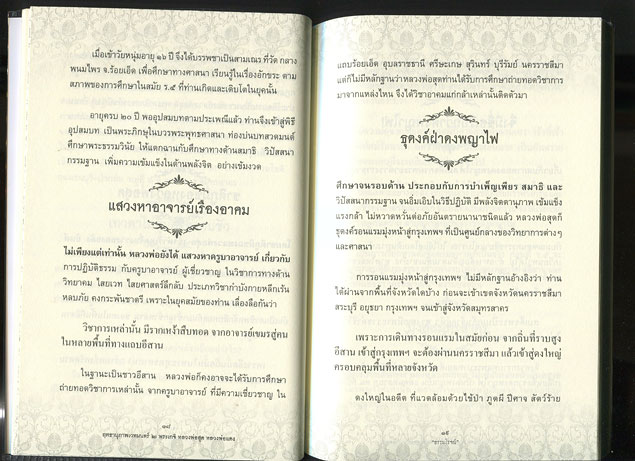 เมื่อเข้าวัยหนุ่มอายุ ๑๖ ปี จึงได้บรรพชาเป็นสามเณร ที่วัด กลาง
พนมไพร จ.ร้อยเอ็ด เพื่อศึกษาทางศาสนา เรียนรู้ในเรื่องอักขระ ตาม
สภาพของการศึกษาในสมัย ร.๕ ที่ท่านเกิดและเติบโตในยุคนั้น
อายุครบ ๒๐ ปี พออุปสมบทตามประเพณีแล้ว ท่านจึงเข้าสู่พิธี
อุปสมบท เป็นพระภิกษุในบวรพระพุทธศาสนา ท่องบ่นบทสวดมนต์
ศึกษาพระธรรมวินัย ให้แตกฉานกับการศึกษาทางด้านสมาธิ วิปัสสนา
กรรมฐาน เพิ่มความเข้มแข็งในด้านพลังจิต อย่างเข้มงวด
แสวงหาอาจารย์เรืองอาคม
ไม่เพียงแต่เท่านั้น หลวงพ่อยังได้ แสวงหาครูบาอาจารย์ เกี่ยวกับ
การปฏิบัติธรรม กับครูบาอาจารย์ ผู้เชี่ยวชาญ ในวิชาการทางด้าน
วิทยาคม ไสยเวท ไสยศาสตร์ลึกลับ ประเภทวิชากำบังกายหลีกเร้น
หลบภัย คงกระพันชาตรี เพราะในยุคสมัยของท่าน เลื่องลือกันว่า
วิชาการเหล่านั้น มีรากเหง้าสืบทอด จากอาจารย์เขมรสู่คน
ในหลายพื้นที่ทางแถบอีสาน
ในฐานะเป็นชาวอีสาน หลวงพ่อก็คงอาจจะได้รับการศึกษา
ถ่ายทอดวิชาการเหล่านั้น จากครูบาอาจารย์ ที่มีความเชี่ยวชาญ ใน
๑๘
แถบร้อยเอ็ด อุบลราชธานี ศรีษะเกษ สุรินทร์ บุรีรัมย์ นครราชสีมา
แต่ก็ไม่มีหลักฐานว่าหลวงพ่อสุดท่านได้รับการศึกษาถ่ายทอดวิชาการ
มาจากแหล่งไหน จึงได้วิชาอาคมแก่กล้าเหล่านั้นติดตัวมา
ธุดงค์ฝ่าดงพญาไฟ
ศึกษาจนรอบด้าน ประกอบกับการบำเพ็ญเพียร สมาธิ และ
วิปัสสนากรรมฐาน จนอิ่มเอิบในวิธีปฏิบัติ มีพลังจิตตานุภาพ เข้มแข็ง
แรงกล้า ไม่หวาดหวั่นต่อภัยอันตรายนานาชนิดแล้ว หลวงพ่อสุดก็
ธุดงค์รอนแรมมุ่งหน้าสู่กรุงเทพฯ ที่เป็นศูนย์กลางของวิทยาการต่างๆ
และศาสนา
การรอนแรมมุ่งหน้าสู่กรุงเทพฯ ไม่มีหลักฐานอ้างอิงว่า ท่าน
ได้ผ่านจากพื้นที่จังหวัดใดบ้าง ก่อนจะเข้าเขตจังหวัดนครราชสีมา
สระบุรี อยุธยา กรุงเทพฯ จนเข้าสู่จังหวัดสมุทรสาคร
เพราะการเดินทางรอนแรมในสมัยก่อน จากถิ่นที่ราบสูง
อีสาน เข้าสู่กรุงเทพฯ จะต้องผ่านนครราชสีมา แล้วเข้าสู่ดงใหญ่
ครอบคลุมพื้นที่หลายจังหวัด
ดงใหญ่ในอดีต ที่แวดล้อมด้วยไข้ป่า ภูตผี ปีศาจ สัตว์ร้าย
๑๙